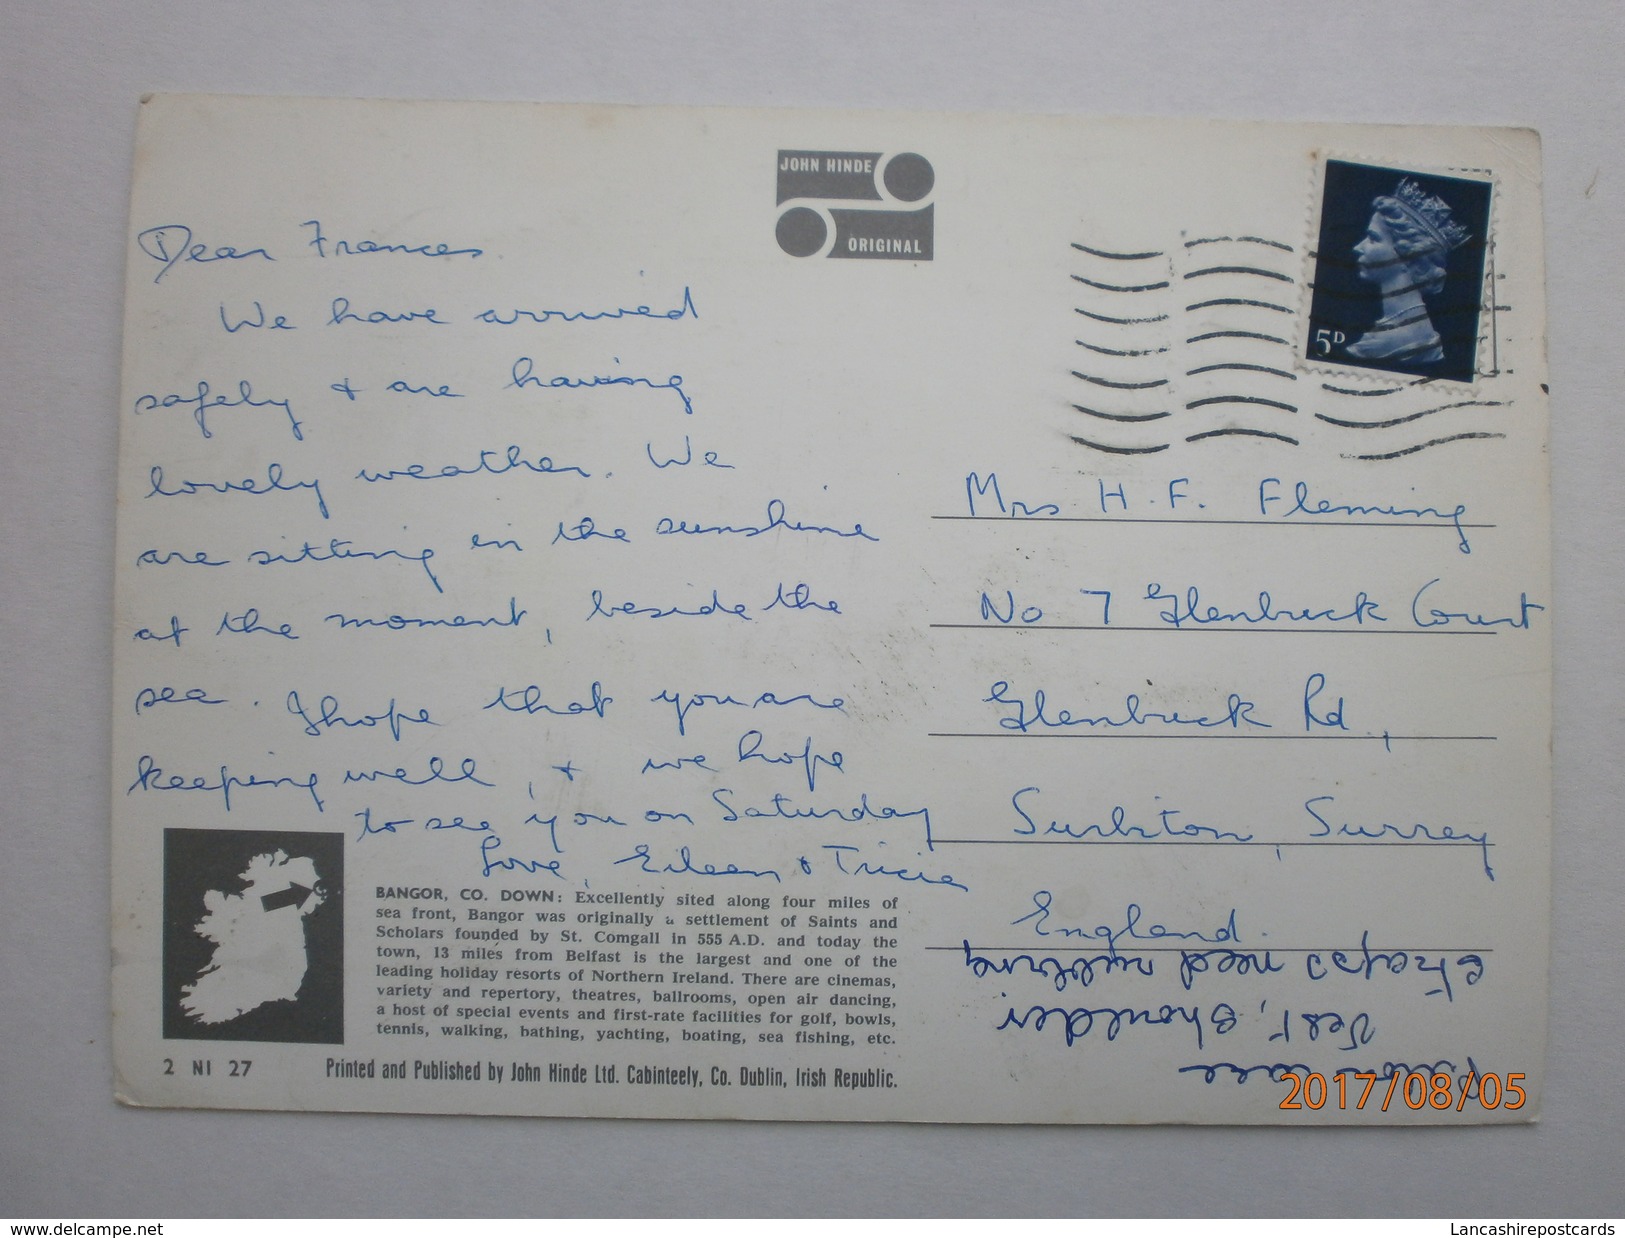 JOHN HINDE
ORIGINAL
5D
Dear Frances
We have arrived
safely + are having
lovely weather. We
are sitting in the sunshine
at the moment, beside the
sea. I hope that you are
keeping well, + we hope
to see you on Saturday
Love, Eileen + Tricia
Mrs H. F. Fleming
No 7 Glenbuck Court
Glenbuck Rd,
Surbiton, Surrey
England.
Pillow case
Vest, shoulder
straps need
BANGOR, CO. DOWN: Excellently sited along four miles of
sea front, Bangor was originally a settlement of Saints and
Scholars founded by St. Comgall in 555 A.D. and today the
town, 13 miles from Belfast is the largest and one of the
leading holiday resorts of Northern Ireland. There are cinemas,
variety and repertory, theatres, ballrooms, open air dancing,
a host of special events and first-rate facilities for golf, bowls,
tennis, walking, bathing, yachting, boating, sea fishing, etc.
2 NI 27
Printed and Published by John Hinde Ltd. Cabinteely, Co. Dublin, Irish Republic.
2017/08/05
www.delcampe.net
Lancashirepostcards